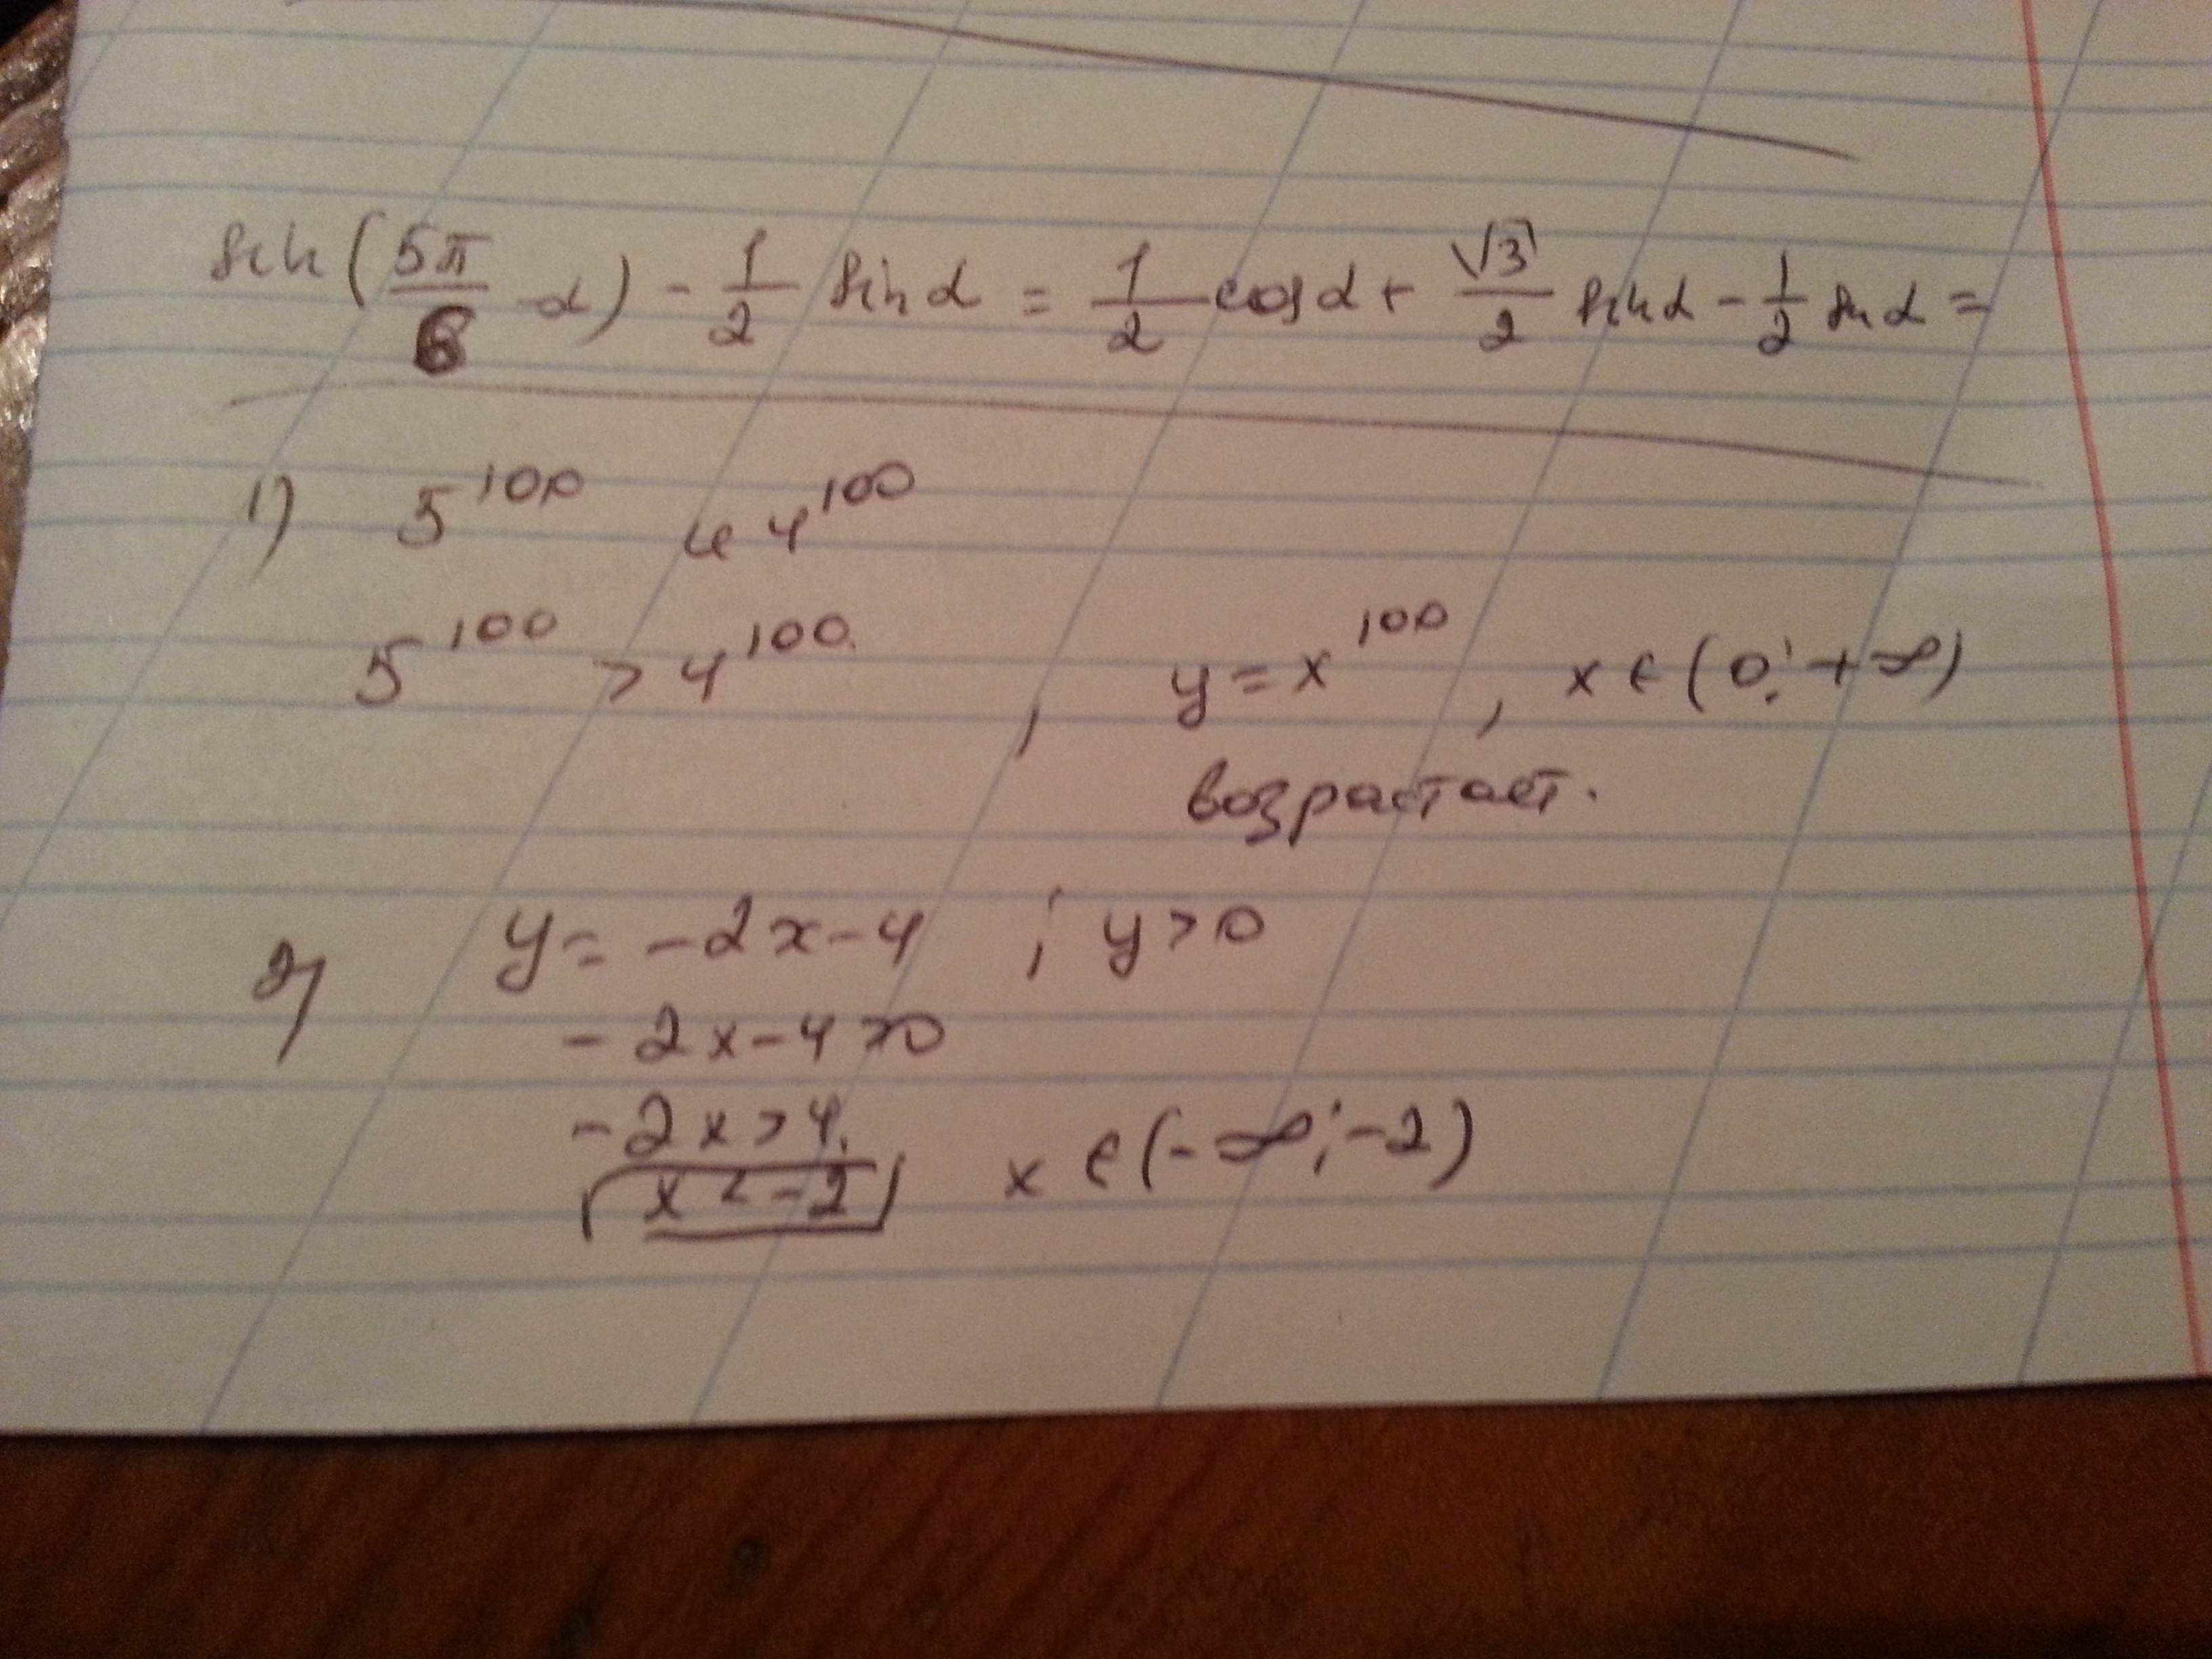 sin(5π/6 - α) - 1/2 sin α = 1/2 cos α + √3/2 sin α - 1/2 sin α =
1) 5^100 и 4^100
5^100 > 4^100, y = x^100, x ∈ (0; +∞)
возрастает.
2) y = -2x-4 ; y > 0
-2x-4>0
-2x>4.
x < -2 x ∈ (-∞; -2)